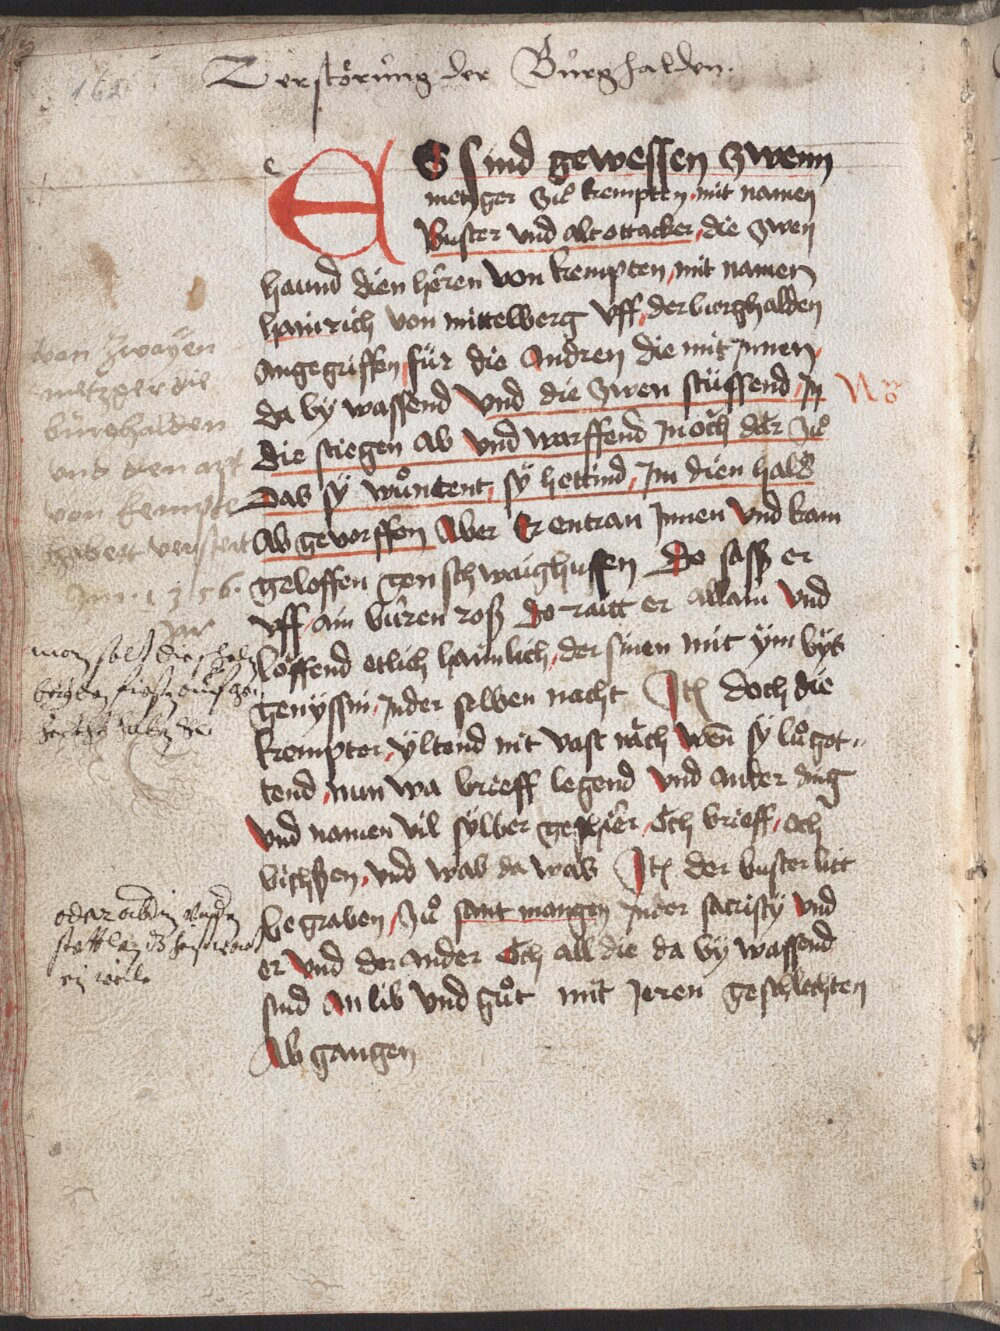 162
Zerstörung der Burghalden.
ES sind gewessen zwenn
metzger zuͦ kempten mit namen
Buster vnd alt ottacker die zwen
haund dien heren von kempten mit namen
hainrich von mittelberg vff der burghalden
angegriffen für die andren die mit Innen
da by wassend vnd die zwen stüssend In
die stiegen ab vnd warffend In och dar zuͦ
Das sÿ wuͦntent sÿ hettind Im dien hals
ab geworffen Aber Er entran Innen vnd kam
geloffen gen schwaighussen Do sass er
vff ain buren ross do raitt er allain vnd
loffend etlich haimlich der sinen mit ÿm bÿs
gen ÿssni In der selben nacht Itͫ doch die
kempter ÿltend nit vast nach wen̄ sy luͦgot-
tend nun wa brieff legend vnd ander ding
vnd namen vil sylber geschier Och brieff och
bichssen vnd was da was Itͫ der buster litt
begraben zuͦ sant mangen In der sacristy vnd
er vnd der ander Och all die da by wassend
sind an lib vnd guͦt mit Jeren geschlechten
Ab gangen
von zwayen
metzger die
burghalden
vnd den apt
von kempte
habett verstert
Im 1 3 5 6.
Jar
man solt die schelm